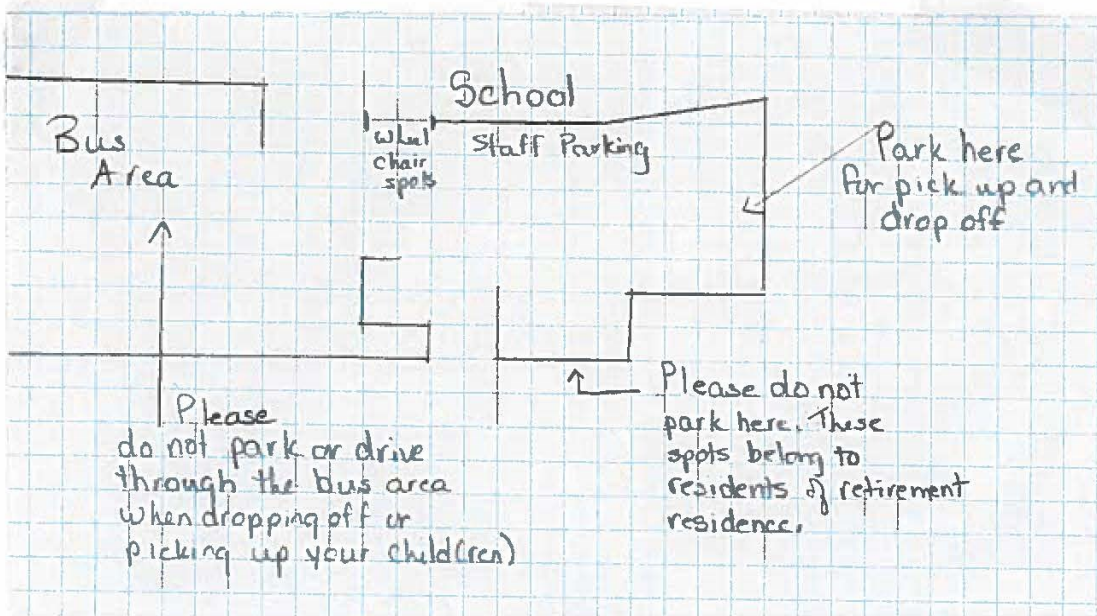 School
Bus
Area
wheel
chair
spots
Staff Parking
Park here
for pick up and
drop off
Please
do not park or drive
through the bus area
when dropping off or
picking up your child(ren)
Please do not
park here. These
spots belong to
residents of retirement
residence.